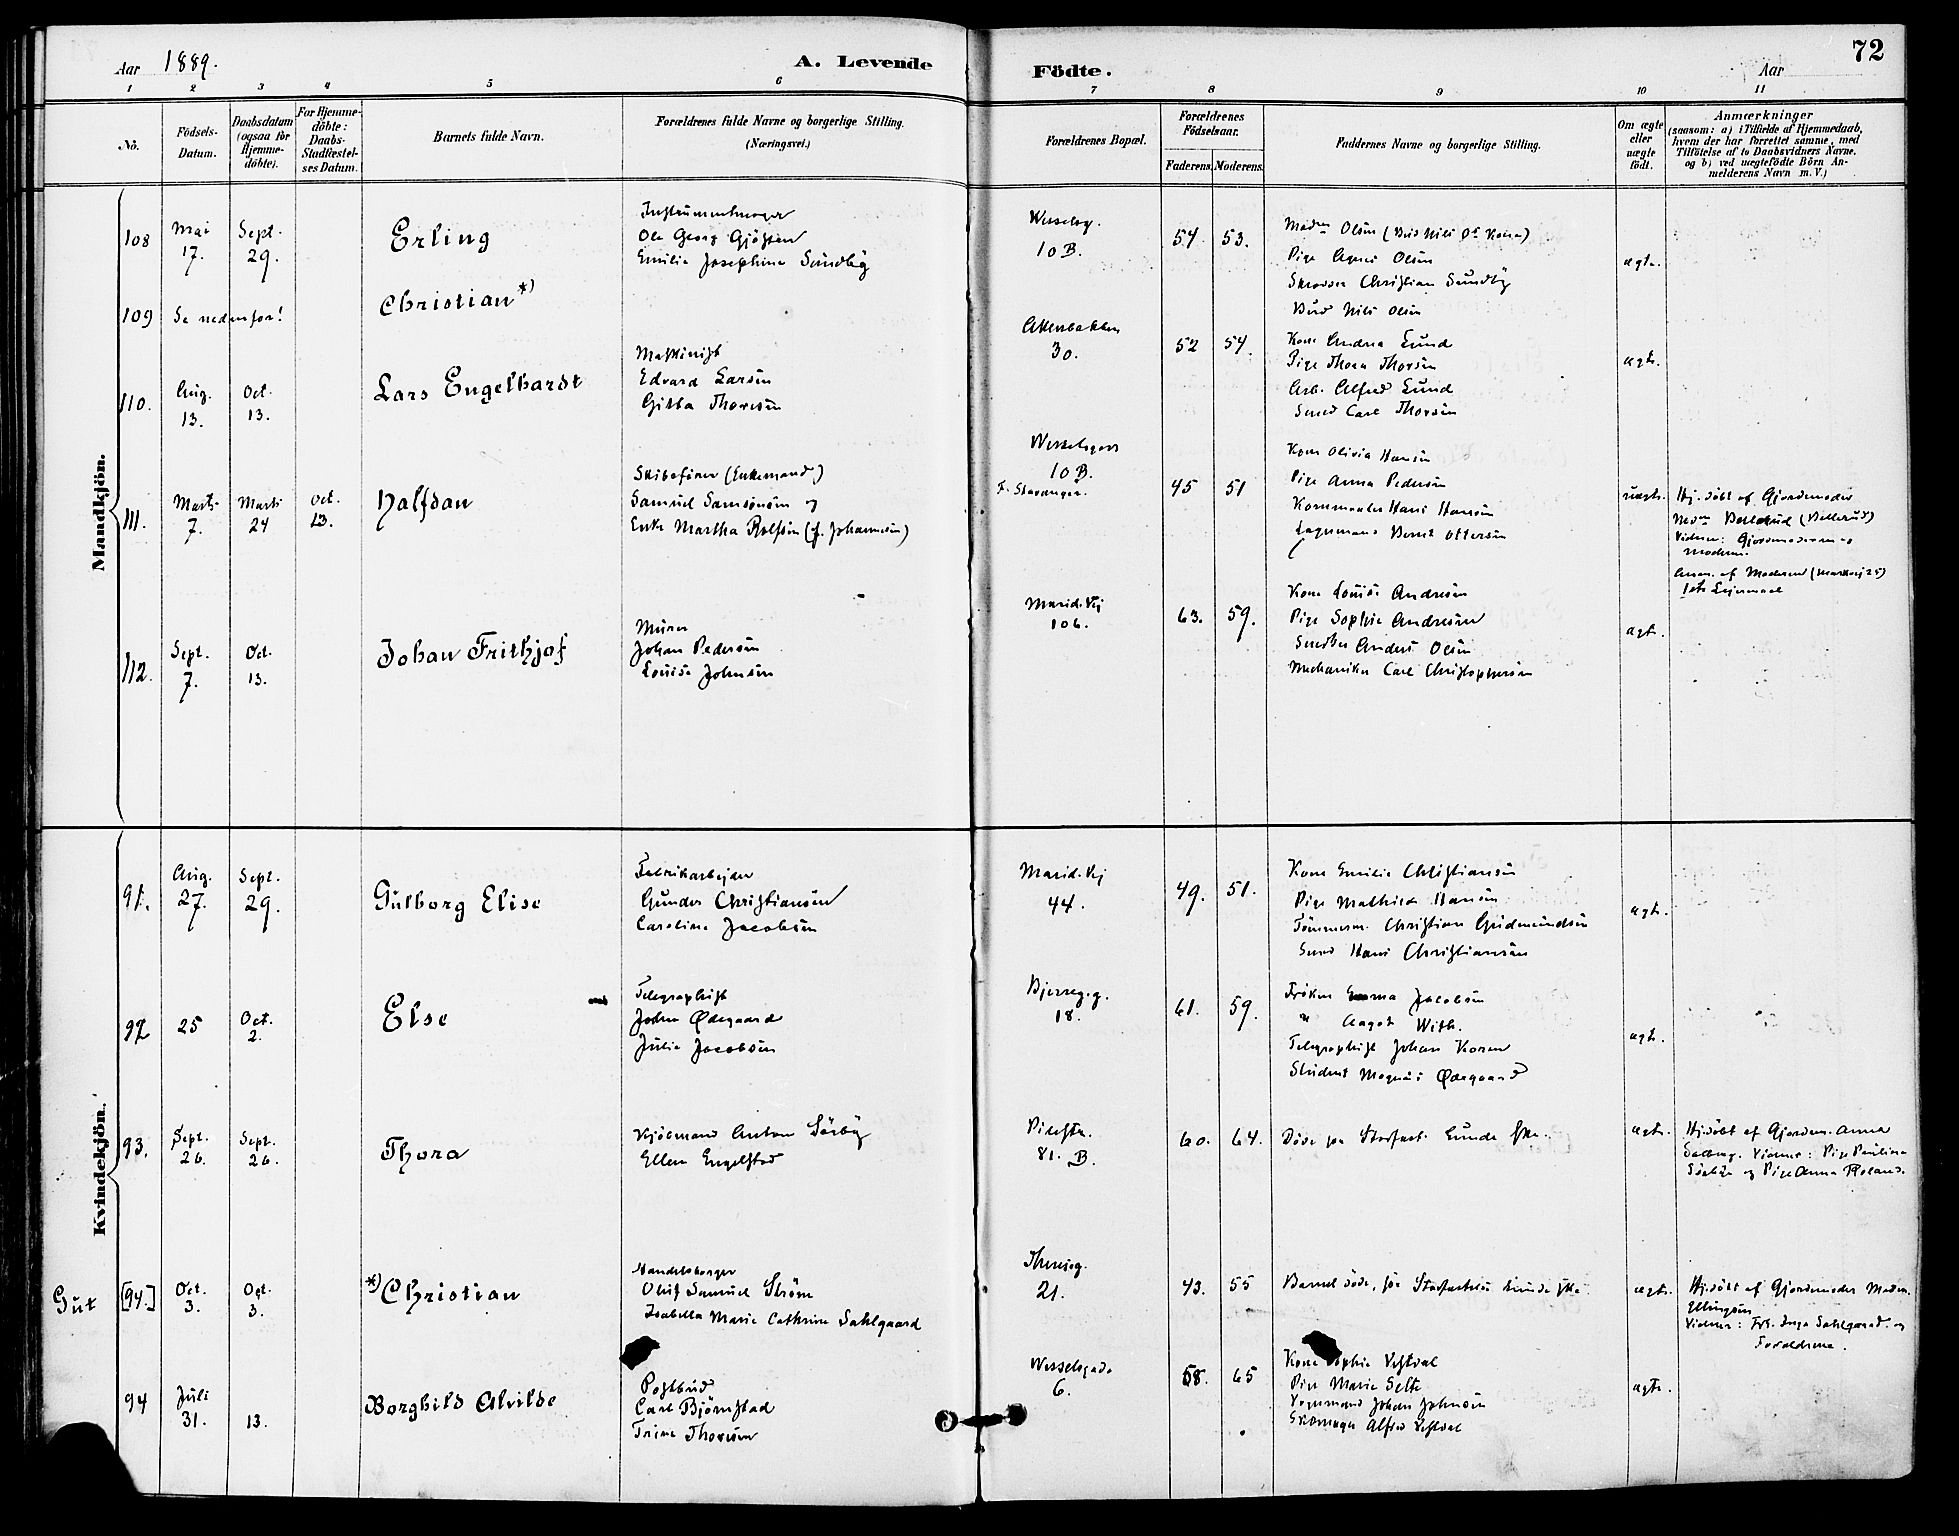 Aar 1889.
A. Levende Födte.
Aar
72
1 2 3 4 5 6 7 8 9 10 11
No.
Födsels-
Datum.
Daabsdatum
(ogsaa for
Hjemme-
döbte).
For Hjemme-
döbte:
Daabs-
Stadfæstel-
ses Datum.
Barnets fulde Navn.
Forældrenes fulde Navne og borgerlige Stilling.
(Næringsvei.)
Forældrenes Bopæl.
Forældrenes
Födselsaar.
Faderens. Moderens.
Faddernes Navne og borgerlige Stilling.
Om ægte
eller
uægte
födt.
Anmærkninger
(saasom: a) i Tilfælde af Hjemmedaab,
hvem der har forrettet samme, med
Tilföielse af to Daabsvidners Navne.
og b) ved uægtefödte Börn An-
melderens Navn m. V.)
Mandkjön.
108
Mai
17.
Sept.
29.
Erling
Instrumentmager
Ole Georg Gjösten
Emilie Josephine Sundby
Wesselsg.
10 B.
54 53.
Pige Agnes Olsen
Christian Sundby
Bud Nils Olsen
ægte.
109
Se nedenfor!
Christian *)
110.
Aug.
13.
Oct.
13.
Lars Engelhardt
Maskinist
Edvard Larsen
Gitba Thoresen
Akersbakken
30.
52 54.
Kone Andrea Lund
Pige Thora Thorsen
Arb. Alfred Lund
Smed Carl Thorsen
ægte.
111.
Marts
7.
Marts
24
Oct.
13.
Halfdan
Skibsförer (Enkemand)
Samuel Samsonsen og
Enke Martha Rolfsen (f. Johannesen)
Wesselsgade
10 B.
f. Stavanger.
45 51
Kone Olivia Hansen
Pige Anna Pedersen
Kornmaaler Hans Hansen
Lagermand Bernt Ottersen
uægte.
Hj. döbt af Gjordemoder
Vidner: Gjordemoderen og
Moderen.
Anm. af Moderen
1ste Leiermaal
112.
Sept.
7.
Oct.
13.
Johan Frithjof
Murer
Johan Pedersen
Louise Johnsen
Marid. Vej
106.
63. 59.
Kone Louise Andresen
Pige Sophie Andresen
Snedker Anders Olsen
Mechaniker Carl Christophersen
ægte.
Kvindekjön.
91.
Aug.
27.
Sept.
29.
Gulborg Elise
Fabrikarbejder
Gunder Christiansen
Caroline Jacobsen
Marid. Vej
44.
49. 51.
Kone Emilie Christiansen
Pige Mathilde Hansen
Tömmerm. Christian Gudmundsen
Smed Hans Christiansen
ægte.
92
25
Oct.
2.
Else
Telegraphist
John Ødegaard
Julie Jacobsen
Bjerreg. g.
18.
61. 59.
Fröken Emma Jacobsen
" Aagot With.
Telegraphist Johan Koren
Student Magnus Ødegaard
ægte.
93.
Sept.
26.
Sept.
26.
Thora
Kjöbmand Anton Sörby
Ellen Engelstad
Pilestr.
81. B.
60. 64.
Döde før Stadfæst. kunde ske.
ægte.
Hj. döbt af Gjordem. Anna
Vidner: Pige Pauline
Sörby og Pige Anna Roland.
Gut
[94.]
Oct.
3.
Oct.
3.
*) Christian
Handelsborger
Oluf Samuel Ström
Isabella Marie Cathrine Dahlgaard
Theresesg.
21.
43. 55
Barnet döde, før Stadfæstelse kunde ske.
ægte.
Hj. döbt af Gjordemoder Madm.
Ellingsen
Vidner: Frk. Inga Dahlgaard og
Forældrene.
94
Juli
31.
13.
Borghild Alvilde
Postbud
Carl Björnstad
Trine Thoresen
Wesselsgade
6.
58. 65
Kone Sophie Vestval
Pige Marie Selte
Vognmand Johan Johnsen
Skomager Alfred Vestval
ægte.